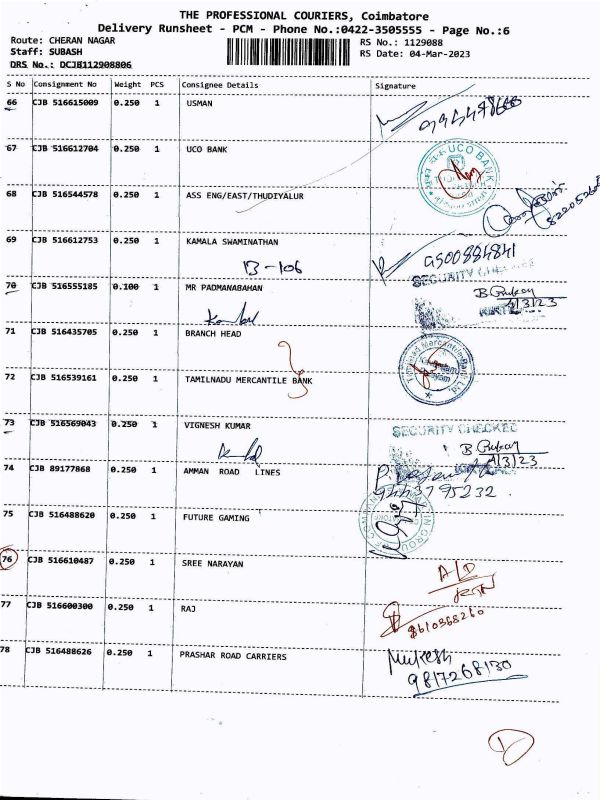 THE PROFESSIONAL COURIERS, Coimbatore
Delivery Runsheet - PCM - Phone No.:0422-3505555 - Page No.:6
Route: CHERAN NAGAR
RS No.: 1129088
Staff: SUBASH
RS Date: 04-Mar-2023
DRS No.: DCJB112908806
S No Consignment No Weight PCS Consignee Details Signature
66 CJB 516615009 0.250 1 USMAN
67 CJB 516612704 0.250 1 UCO BANK
UCO BANK
68 CJB 516544578 0.250 1 ASS ENG/EAST/THUDIYALUR
69 CJB 516612753 0.250 1 KAMALA SWAMINATHAN
9500884841
B-106
SECURITY CHECKED
70 CJB 516555185 0.100 1 MR PADMANABAHAN
4/3/23
71 CJB 516435705 0.250 1 BRANCH HEAD
Tamilnad Mercantile Bank Ltd.
72 CJB 516539161 0.250 1 TAMILNADU MERCANTILE BANK
73 CJB 516569043 0.250 1 VIGNESH KUMAR
SECURITY CHECKED
4/3/23
74 CJB 89177868 0.250 1 AMMAN ROAD LINES
75 CJB 516488620 0.250 1 FUTURE GAMING
76 CJB 516610487 0.250 1 SREE NARAYAN
A/D
77 CJB 516600300 0.250 1 RAJ
8610868260
78 CJB 516488626 0.250 1 PRASHAR ROAD CARRIERS
Mukesh
9817268130